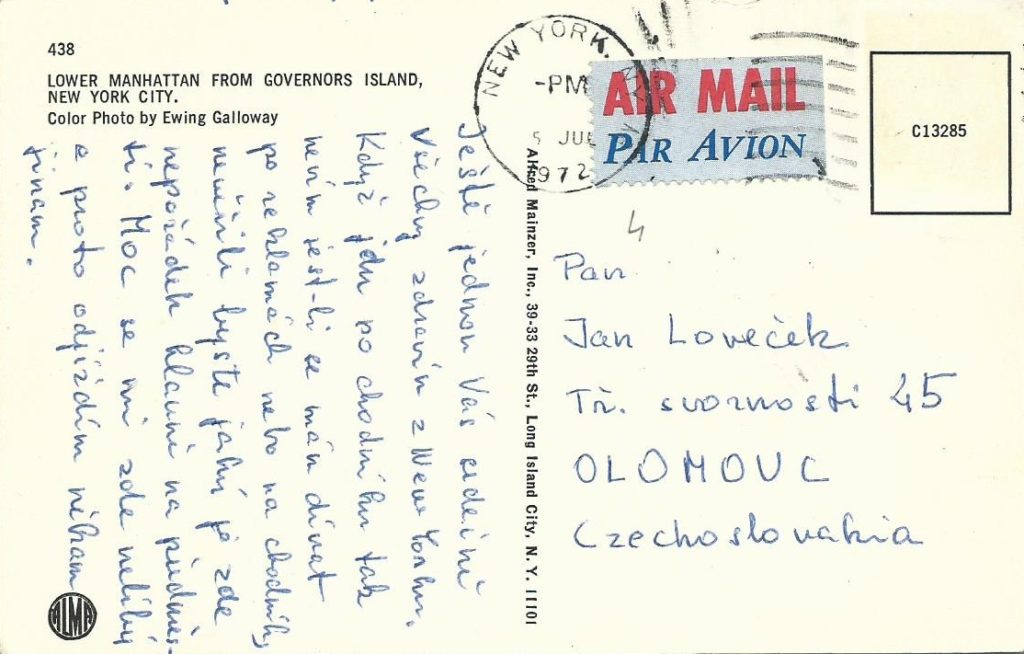 438
LOWER MANHATTAN FROM GOVERNORS ISLAND,
NEW YORK CITY.
Color Photo by Ewing Galloway
NEW YORK, N.Y.
-PM
5 JUL
1972
AIR MAIL
PAR AVION
C13285
4
Ještě jednou Vás srdečně
všechny zdravím z New Yorku.
Když jdu po chodníku tak
nevím jest-li se mám dívat
po reklamách nebo na chodníky
nevěřili byste jaký je zde
nepořádek hlavně na předměs-
tí. Moc se mi zde nelíbí
a proto odjíždím někam
jinam.
Alfred Mainzer, Inc., 39-33 29th St., Long Island City, N. Y. 11101
Pan
Jan Loveček
Tř. svornosti 45
OLOMOUC
Czechoslovakia
ALMA